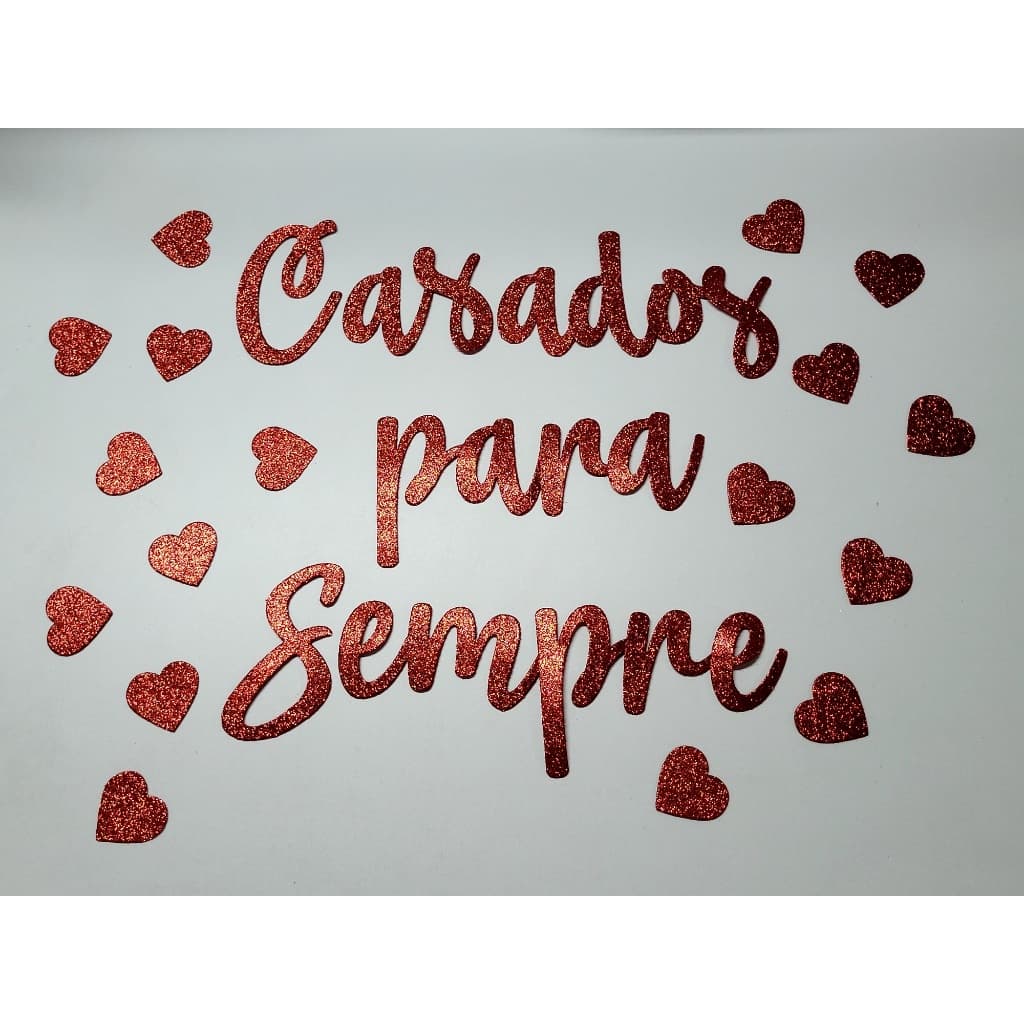 Casados
para
Sempre